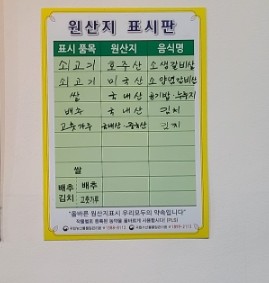 원산지 표시판
표시 품목 원산지 음식명
쇠고기 호주산 소생갈비살
쇠고기 미국산 소양념갈비살
쌀 국내산 공기밥·누룽지
배추 국내산 김치
고춧가루 국내산 중국산 김치
쌀
배추 배추
김치 고춧가루
"올바른 원산지표시 우리모두의 약속입니다"